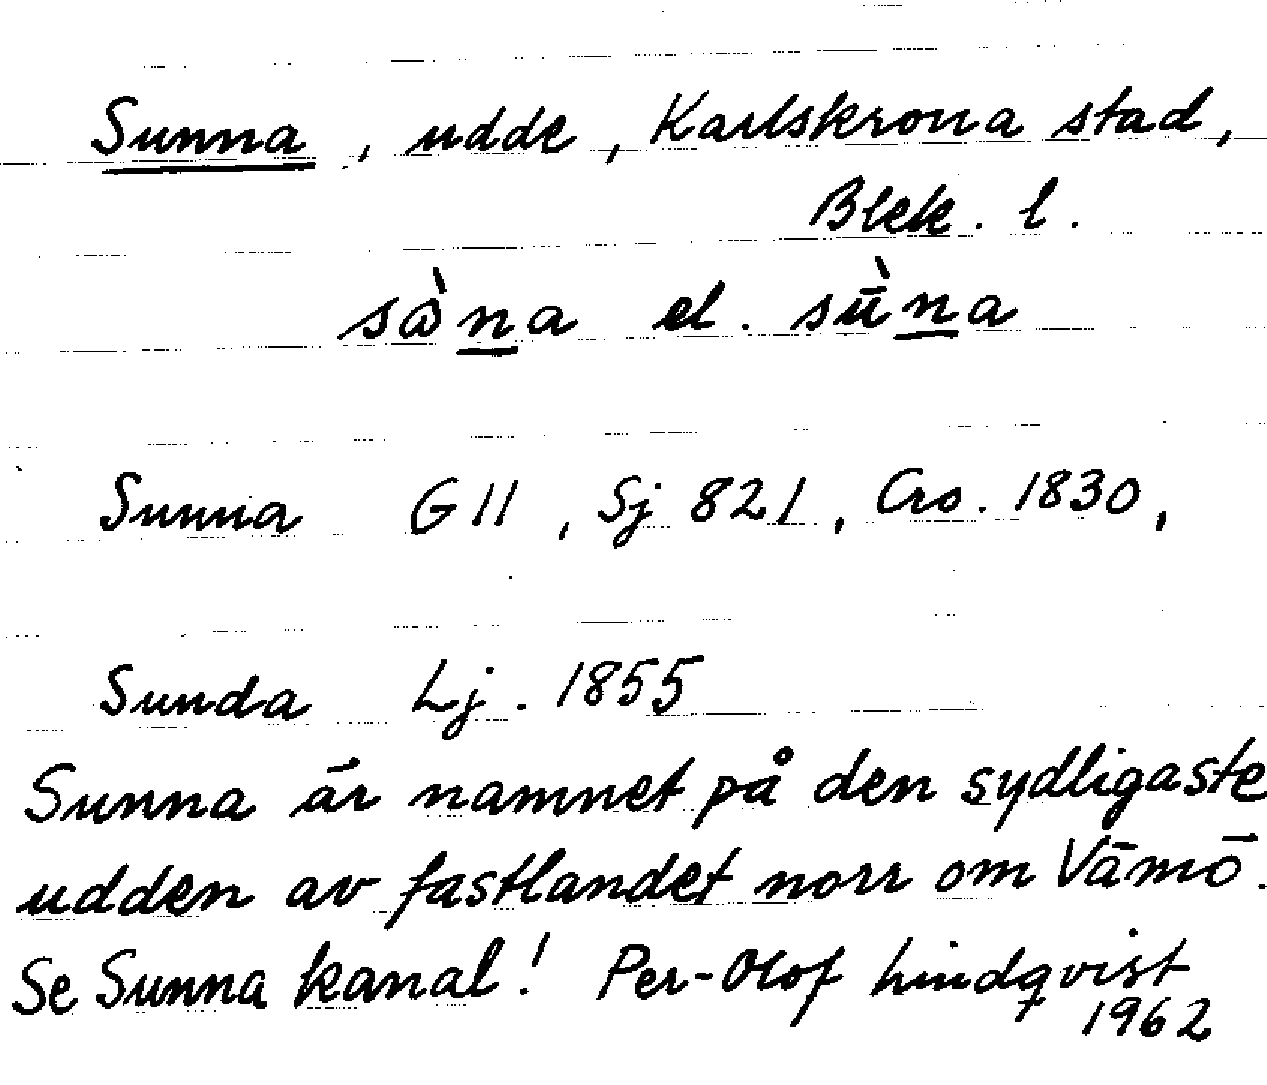 Sunna, udde, Karlskrona stad,
Blek. l.
sàna el. sǜna
Sunna G II, Sj 821, Cro. 1830,
Sunda Lj. 1855
Sunna är namnet på den sydligaste
udden av fastlandet norr om Vämö.
Se Sunna kanal! Per-Olof Lindqvist
1962